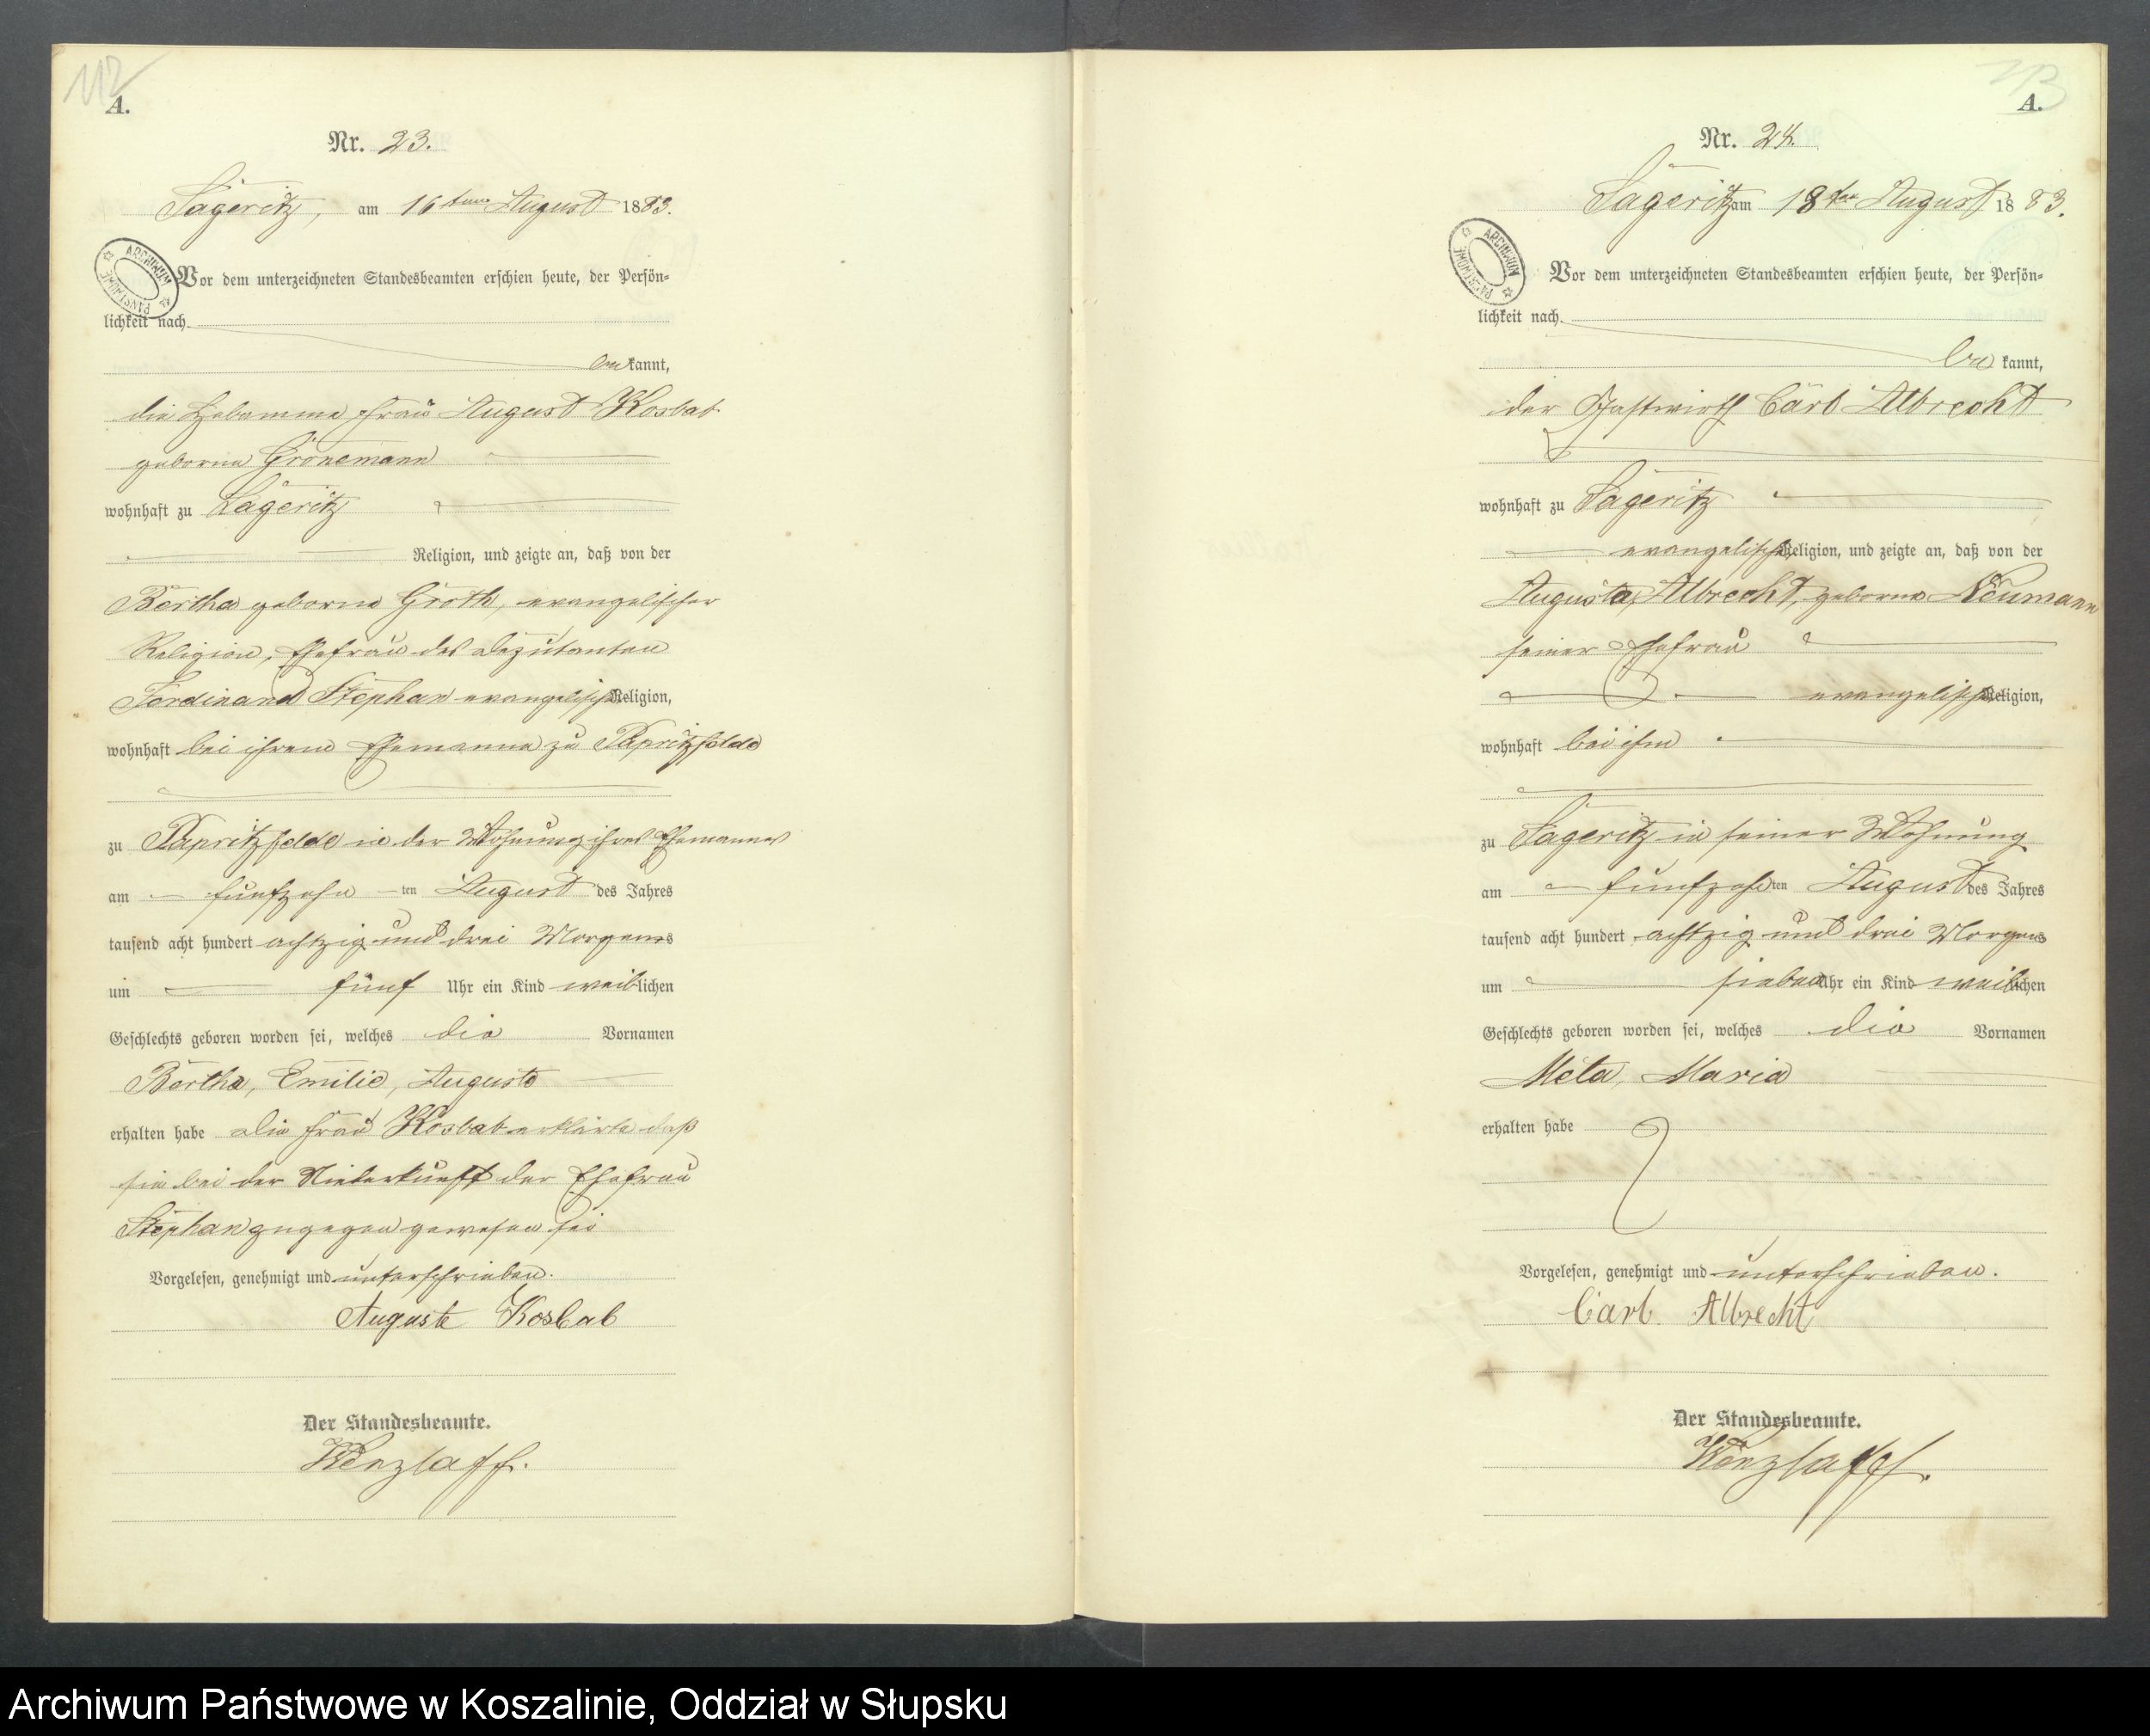 112
A.
Nr. 23.
Sageritz, am 16ten August 1883.
ARCHIWUM
PAŃSTWOWE
Vor dem unterzeichneten Standesbeamten erschien heute, der Persön-
lichkeit nach
bekannt,
die Hebamme Frau August Kosbab
geborne Gronemann
wohnhaft zu Sageritz
Religion, und zeigte an, daß von der
Bertha geborne Groth, evangelischer
Religion, Ehefrau des Deputanten
Ferdinand Stephan evangelischer Religion,
wohnhaft bei ihrem Ehemanne zu Papritzfelde
zu Papritzfelde in der Wohnung ihres Ehemannes
am fünfzehn ten August des Jahres
tausend acht hundert achtzig und drei Morgens
um fünf Uhr ein Kind weiblichen
Geschlechts geboren worden sei, welches die Vornamen
Bertha, Emilie, Auguste
erhalten habe Die Frau Kosbab erklärte daß
sie bei der Niederkunft der Ehefrau
Stephan zugegen gewesen sei
Vorgelesen, genehmigt und unterschrieben.
Auguste Kosbab
Der Standesbeamte.
Wenzlaff.
113
A.
Nr. 24.
Sageritz am 18ten August 1883.
ARCHIWUM
PAŃSTWOWE
Vor dem unterzeichneten Standesbeamten erschien heute, der Persön-
lichkeit nach
bekannt,
der Gastwirth Carl Albrecht
wohnhaft zu Sageritz
evangelischer Religion, und zeigte an, daß von der
Augusta, Albrecht, geborne Neumann
seiner Ehefrau
evangelischer Religion,
wohnhaft bei ihm
zu Sageritz in seiner Wohnung
am fünfzehnten August des Jahres
tausend acht hundert achtzig und drei Morgens
um sieben Uhr ein Kind weiblichen
Geschlechts geboren worden sei, welches die Vornamen
Meta, Maria
erhalten habe
Vorgelesen, genehmigt und unterschrieben.
Carl Albrecht
Der Standesbeamte.
Wenzlaff.
Archiwum Państwowe w Koszalinie, Oddział w Słupsku